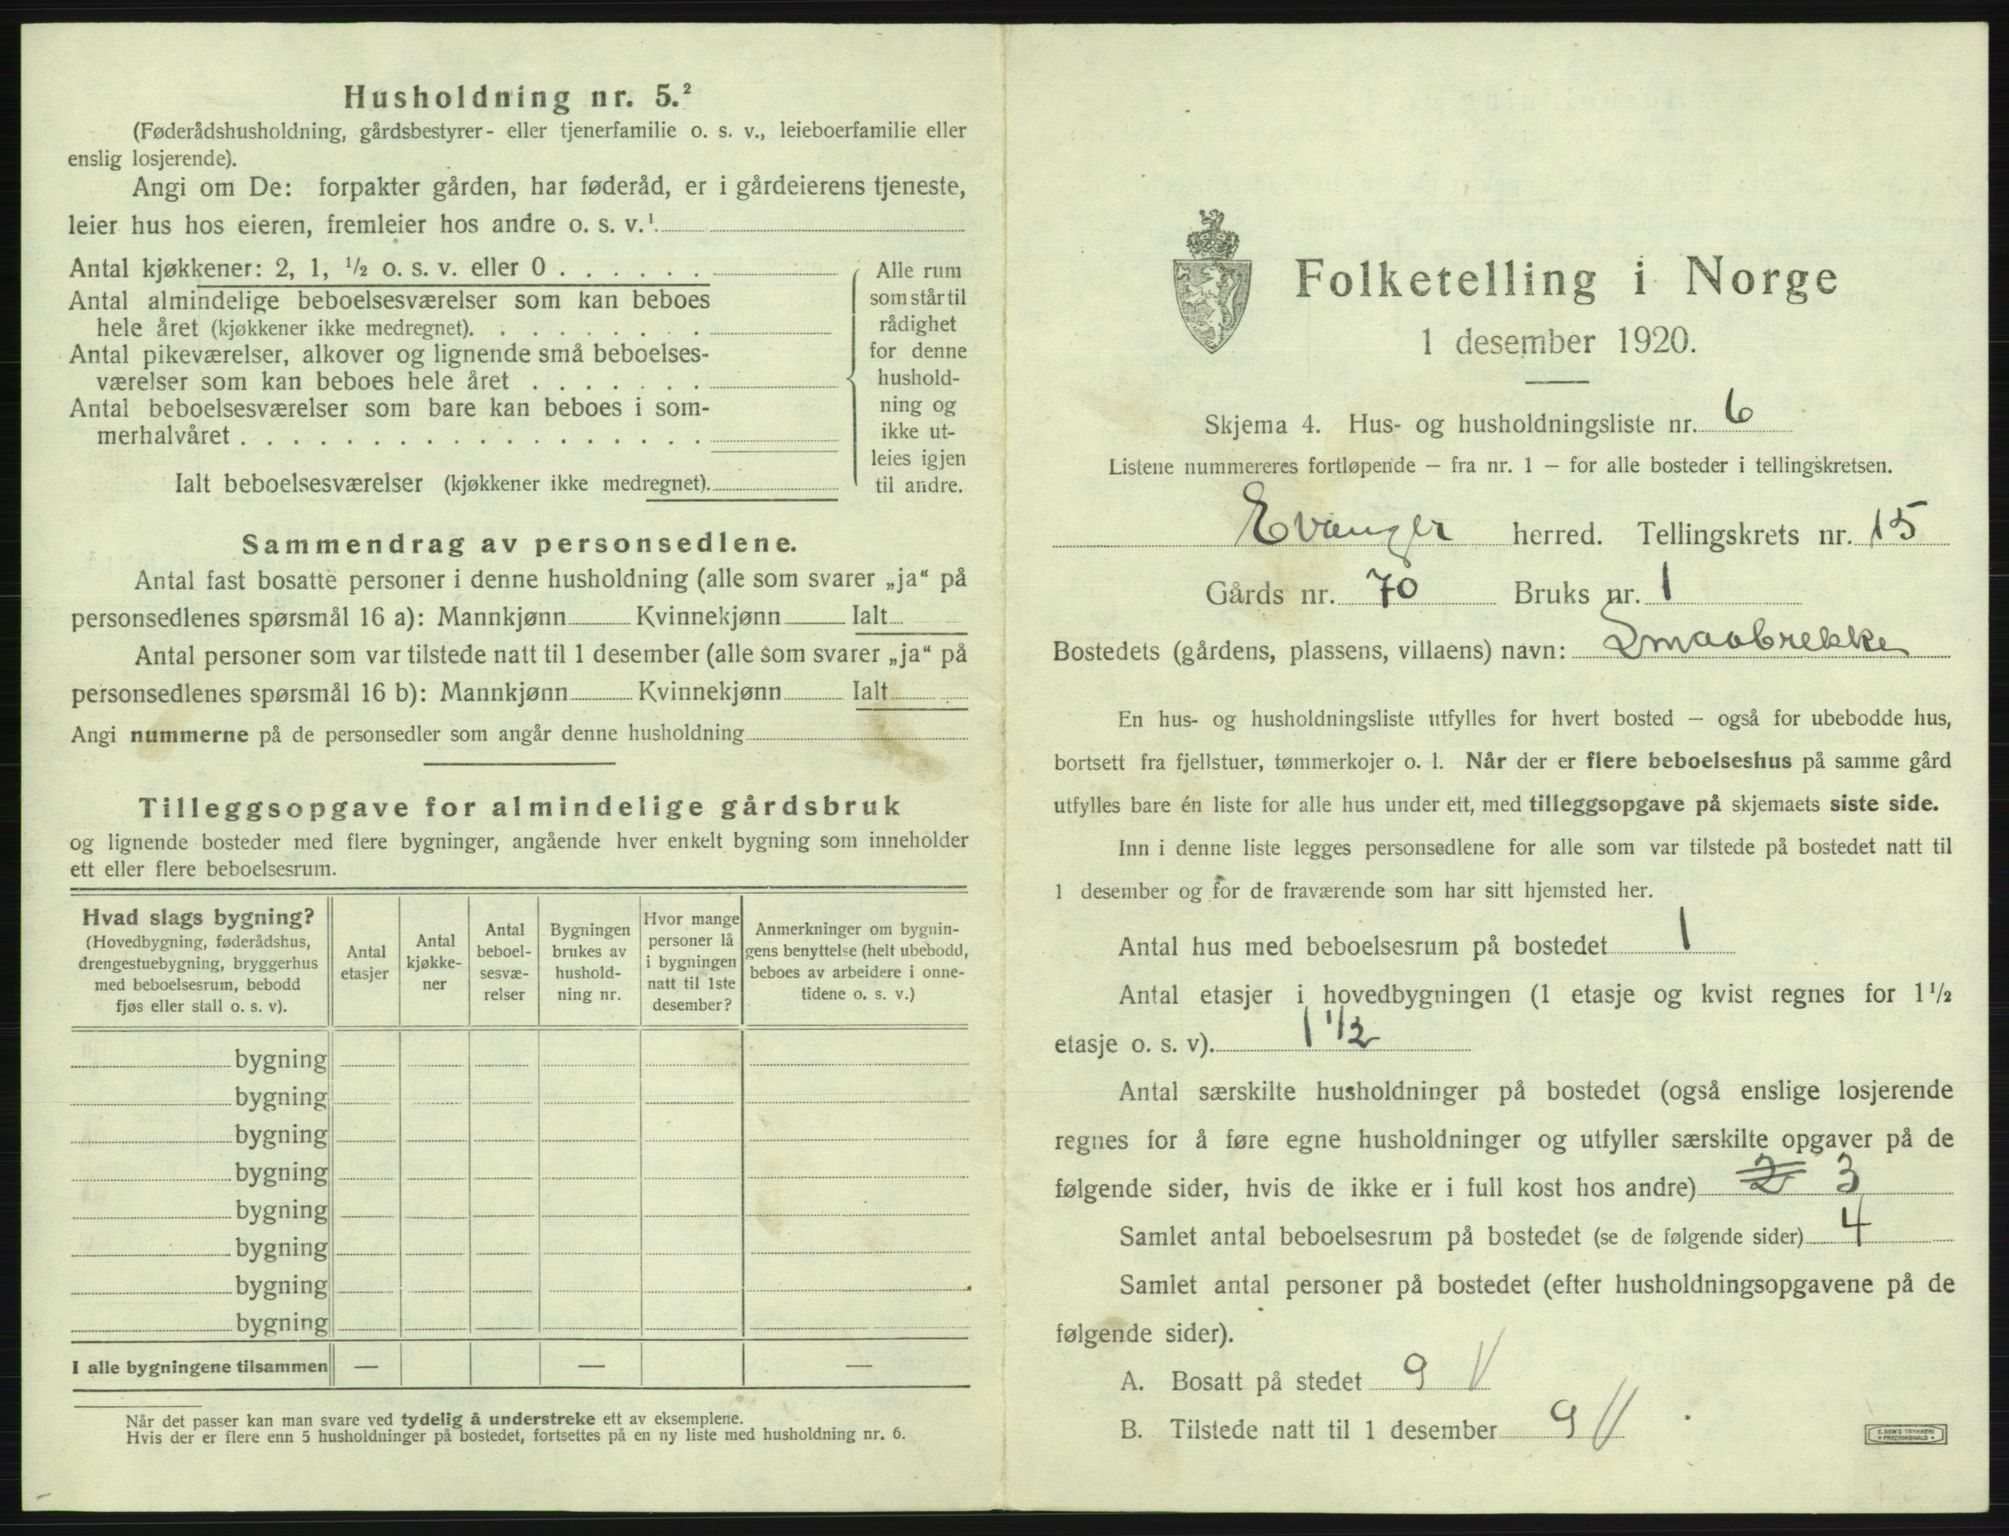 Husholdning nr. 5.²
(Føderådshusholdning, gårdsbestyrer- eller tjenerfamilie o. s. v., leieboerfamilie eller
enslig losjerende).
Angi om De: forpakter gården, har føderåd, er i gårdeierens tjeneste,
leier hus hos eieren, fremleier hos andre o. s. v.¹
Antal kjøkkener: 2, 1, ½ o. s. v. eller 0 . . . . . .
Antal almindelige beboelsesværelser som kan beboes
hele året (kjøkkener ikke medregnet). . . . . . . . .
Antal pikeværelser, alkover og lignende små beboelses-
værelser som kan beboes hele året . . . . . . .
Antal beboelsesværelser som bare kan beboes i som-
merhalvåret . . . . . . . . . . . . . . . . . .
Ialt beboelsesværelser (kjøkkener ikke medregnet).
Alle rum
som står til
rådighet
for denne
hushold-
ning og
ikke ut-
leies igjen
til andre.
Sammendrag av personsedlene.
Antal fast bosatte personer i denne husholdning (alle som svarer „ja“ på
personsedlenes spørsmål 16 a): Mannkjønn Kvinnekjønn Ialt
Antal personer som var tilstede natt til 1 desember (alle som svarer „ja“ på
personsedlenes spørsmål 16 b): Mannkjønn Kvinnekjønn Ialt
Angi nummerne på de personsedler som angår denne husholdning
Tilleggsopgave for almindelige gårdsbruk
og lignende bosteder med flere bygninger, angående hver enkelt bygning som inneholder
ett eller flere beboelsesrum.
Hvad slags bygning?
(Hovedbygning, føderådshus,
drengestuebygning, bryggerhus
med beboelsesrum, bebodd
fjøs eller stall o. s. v).
Antal
etasjer
Antal
kjøkke-
ner
Antal
beboel-
sesvæ-
relser
Bygningen
brukes av
hushold-
ning nr.
Hvor mange
personer lå
i bygningen
natt til 1ste
desember?
Anmerkninger om bygnin-
gens benyttelse (helt ubebodd,
beboes av arbeidere i onne-
tidene o. s. v.)
bygning
bygning
bygning
bygning
bygning
bygning
bygning
bygning
I alle bygningene tilsammen — — —
Når det passer kan man svare ved tydelig å understreke ett av eksemplene.
Hvis der er flere enn 5 husholdninger på bostedet, fortsettes på en ny liste med husholdning nr. 6.
Folketelling i Norge
1 desember 1920.
Skjema 4. Hus- og husholdningsliste nr. 6
Listene nummereres fortløpende — fra nr. 1 — for alle bosteder i tellingskretsen.
Evanger herred. Tellingskrets nr. 15
Gårds nr. 70 Bruks nr. 1
Bostedets (gårdens, plassens, villaens) navn: Smaabrekke
En hus- og husholdningsliste utfylles for hvert bosted — også for ubebodde hus,
bortsett fra fjellstuer, tømmerkojer o. l. Når der er flere beboelseshus på samme gård
utfylles bare én liste for alle hus under ett, med tilleggsopgave på skjemaets siste side.
Inn i denne liste legges personsedlene for alle som var tilstede på bostedet natt til
1 desember og for de fraværende som har sitt hjemsted her.
Antal hus med beboelsesrum på bostedet 1
Antal etasjer i hovedbygningen (1 etasje og kvist regnes for 1½
etasje o. s. v). 1 1/2
Antal særskilte husholdninger på bostedet (også enslige losjerende
regnes for å føre egne husholdninger og utfyller særskilte opgaver på de
følgende sider, hvis de ikke er i full kost hos andre) 2 3
Samlet antal beboelsesrum på bostedet (se de følgende sider) 4
Samlet antal personer på bostedet (efter husholdningsopgavene på de
følgende sider).
A. Bosatt på stedet 9
B. Tilstede natt til 1 desember 9
E. SEM'S TRYKKERI
FREDRIKSHALD